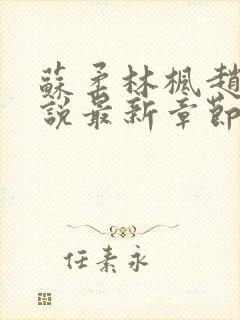 蘇柔林楓趙
說最新章節
任素永